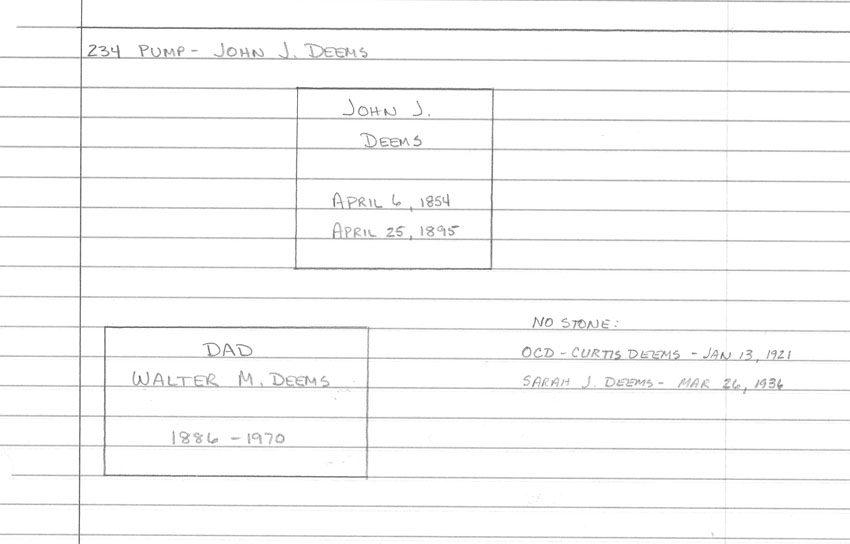 234 PUMP - JOHN J. DEEMS
JOHN J.
DEEMS
APRIL 6, 1854
APRIL 25, 1895
DAD
WALTER M. DEEMS
1886 - 1970
NO STONE:
OCD - CURTIS DEEMS - JAN 13, 1921
SARAH J. DEEMS - MAR 26, 1936